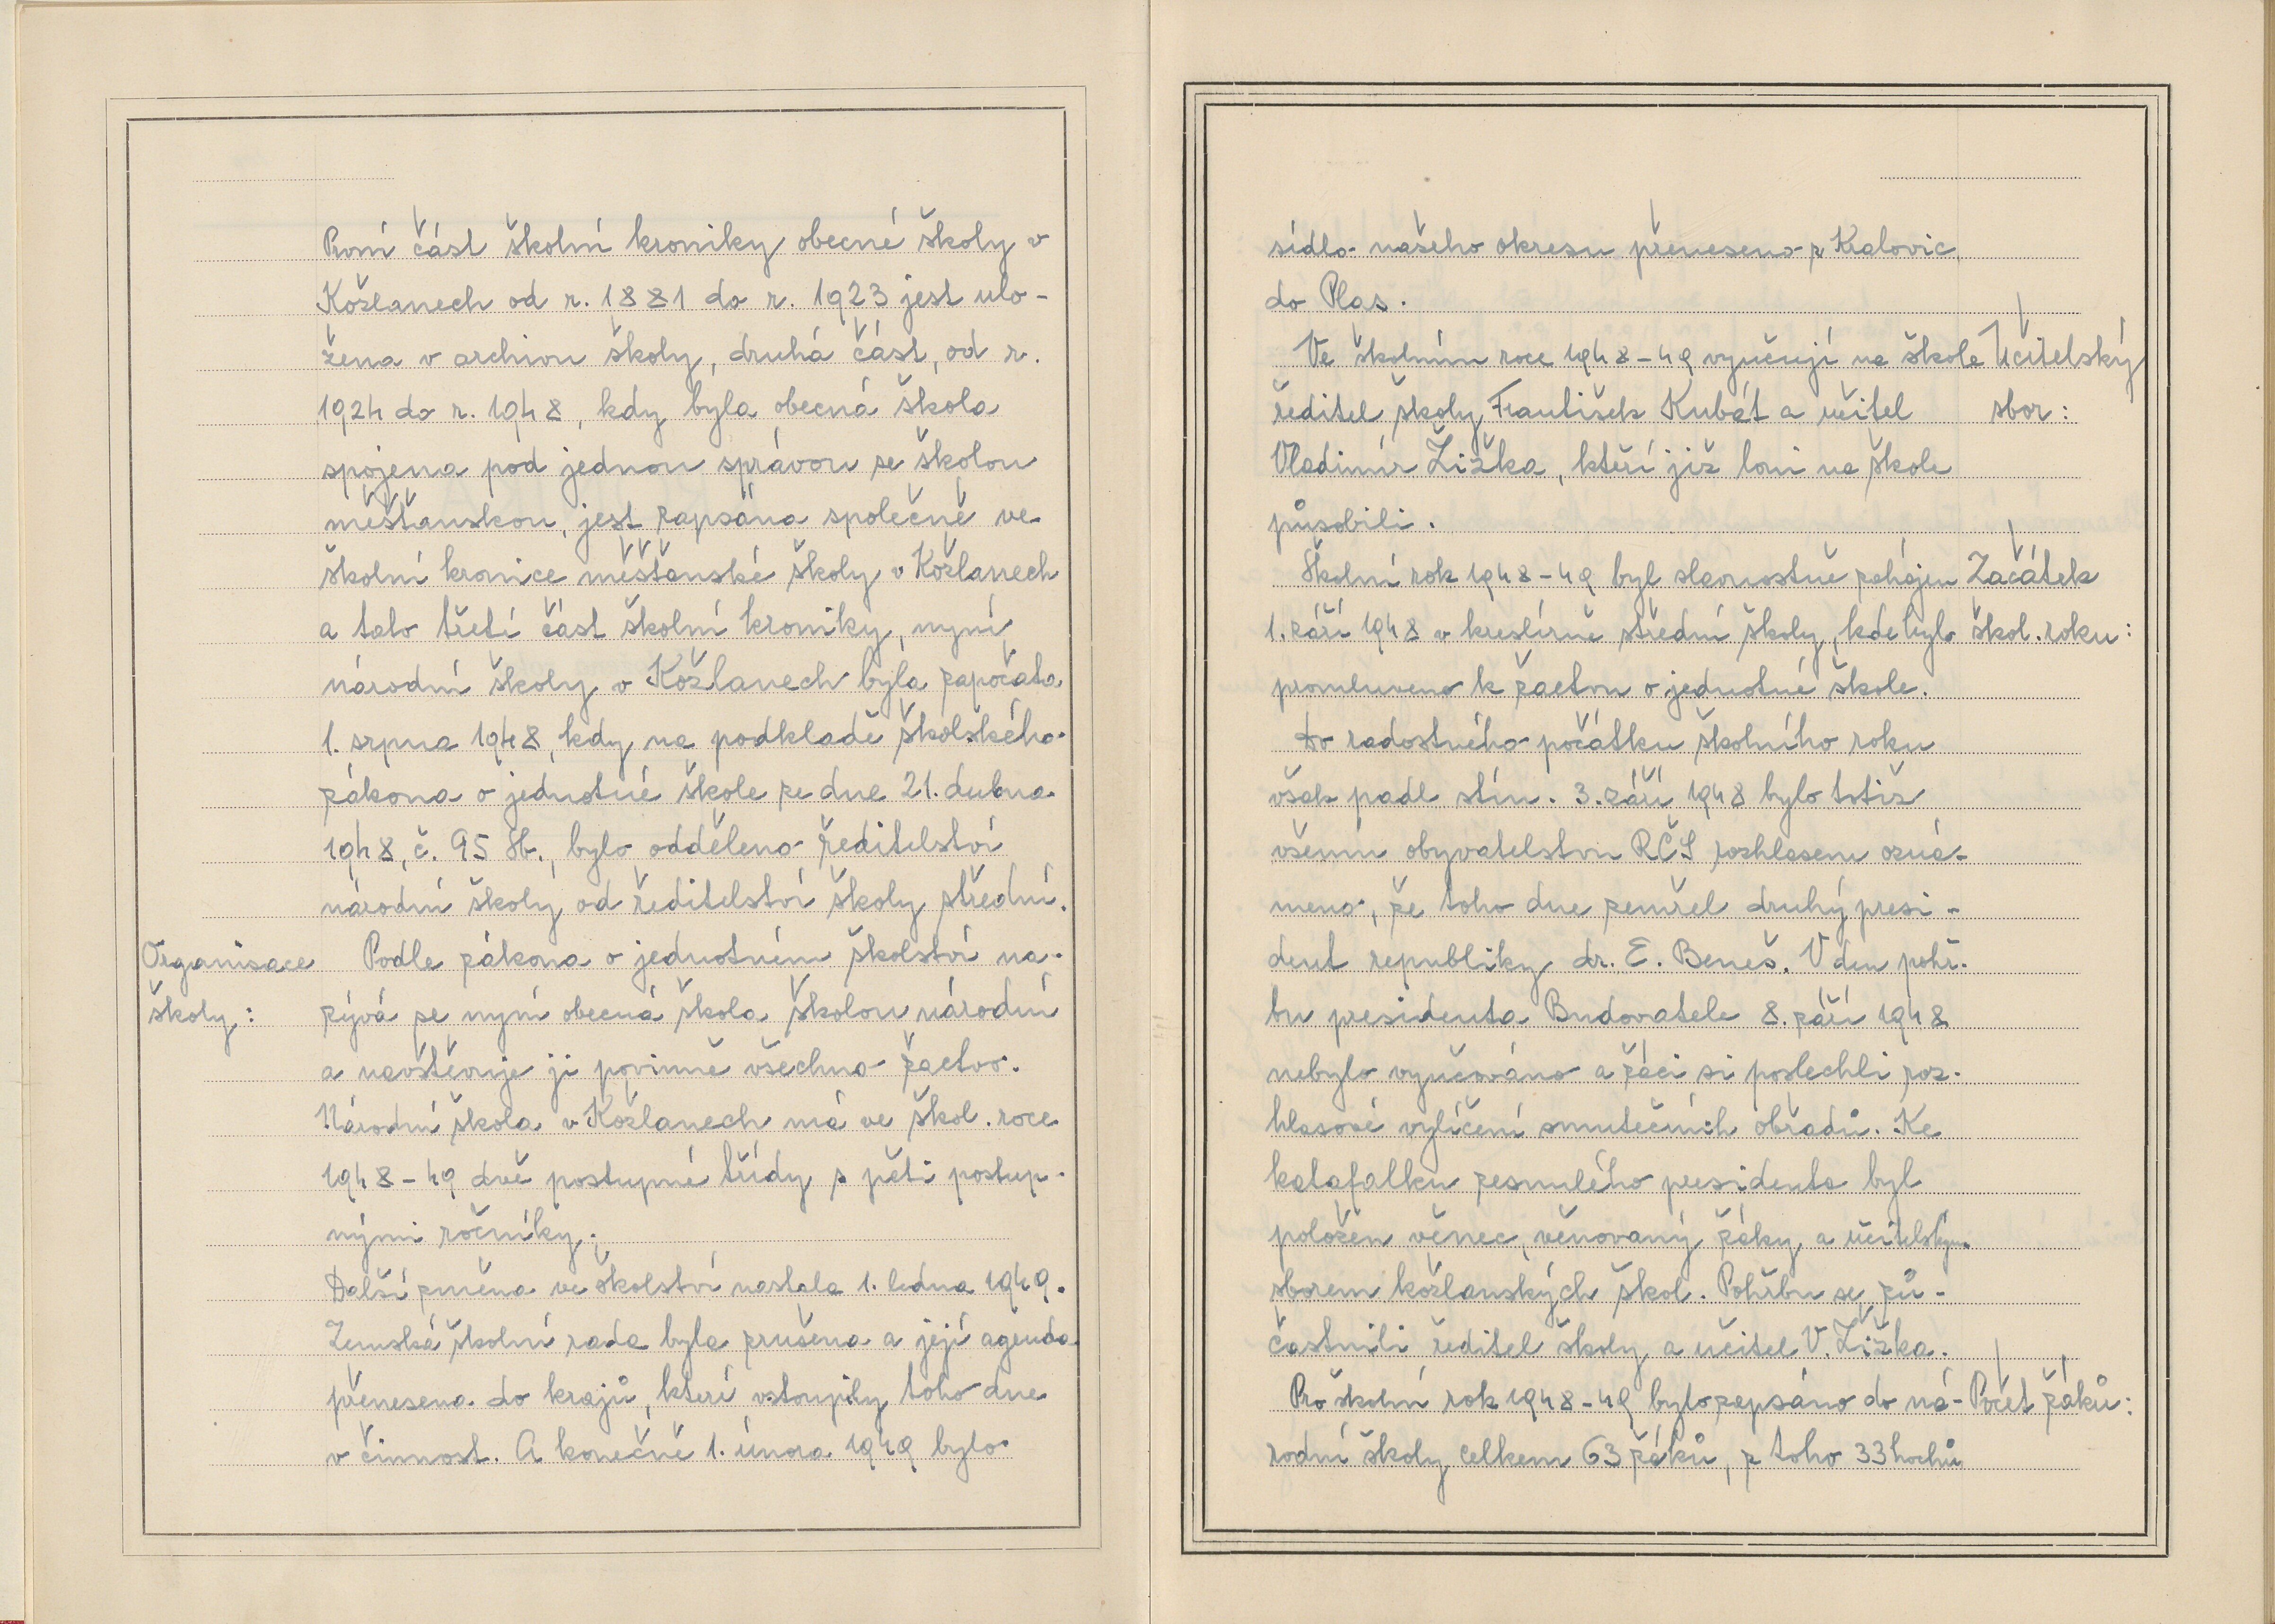 První část školní kroniky obecné školy v
Kožlanech od r. 1881 do r. 1923 jest ulo-
žena v archivu školy, druhá část, od r.
1924 do r. 1948, kdy byla obecná škola
spojena pod jednou správou se školou
měšťanskou, jest zapsána společně ve
školní kronice měšťanské školy v Kožlanech
a tato třetí část školní kroniky, nyní
národní školy v Kožlanech byla započata
1. srpna 1948, kdy na podkladě školského
zákona o jednotné škole ze dne 21. dubna
1948, č. 95 Sb., bylo odděleno ředitelství
národní školy od ředitelství školy střední.
Organisace
školy:
Podle zákona o jednotném školství na-
zývá se nyní obecná škola školou národní
a navštěvuje ji povinně všechno žactvo.
Národní škola v Kožlanech má ve škol. roce
1948-49 dvě postupné třídy s pěti postup-
nými ročníky.
Další změna ve školství nastala 1. ledna 1949.
Zemská školní rada byla zrušena a její agenda
přenesena do krajů, kteří vstoupily toho dne
v činnost. A konečně 1. února 1949 bylo
sídlo našeho okresu přeneseno z Kralovic
do Plas.
Ve školním roce 1948-49 vyučují na škole
ředitel školy František Kubát a učitel
Vladimír Žižka, kteří již loni na škole
působili.
Učitelský
sbor:
Školní rok 1948-49 byl slavnostně zahájen
1. září 1948 v kreslírně střední školy, kde bylo
promluveno k žactvu o jednotné škole.
Začátek
škol. roku:
Do radostného počátku školního roku
však padl stín. 3. září 1948 bylo totiž
všemu obyvatelstvu RČS rozhlasem ozná-
meno, že toho dne zemřel druhý presi-
dent republiky dr. E. Beneš. V den pohř-
bu presidenta Budovatele 8. září 1948
nebylo vyučováno a žáci si poslechli roz-
hlasové vylíčení smutečních obřadů. Ke
katafalku zesnulého presidenta byl
položen věnec, věnovaný žáky a učitelským
sborem kožlanských škol. Pohřbu se zú-
častnili ředitel školy a učitel V. Žižka.
Pro školní rok 1948-49 bylo zapsáno do ná-
rodní školy celkem 63 žáků, z toho 33 hochů
Počet žáků: